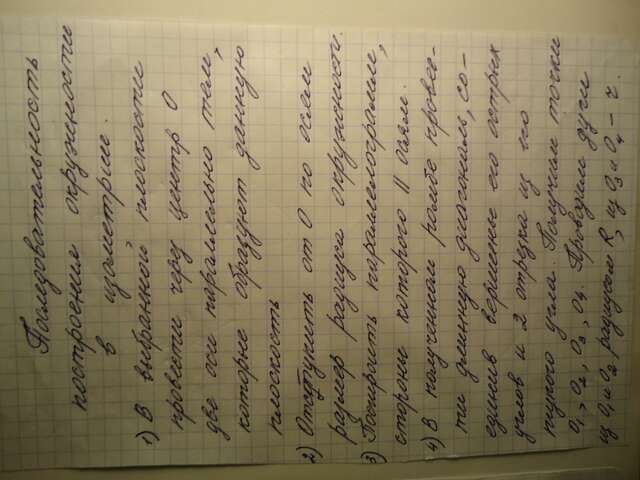 Последовательность
построения окружности
в изометрии.
1) В выбранной плоскости
провести через центр О
две оси параллельно тем,
которые образуют данную
плоскость
2) Отступить от О по осям
размер радиуса окружности.
3) Построить параллелограмм,
стороны которого || осям.
4) В полученном ромбе провес-
ти длинную диагональ, со-
единив вершины его острых
углов и 2 отрезка из его
тупого угла. Получим точки
О₁, О₂, О₃, О₄. Проводим дуги
из О₁ и О₂ радиусом R, из О₃ и О₄ – r.